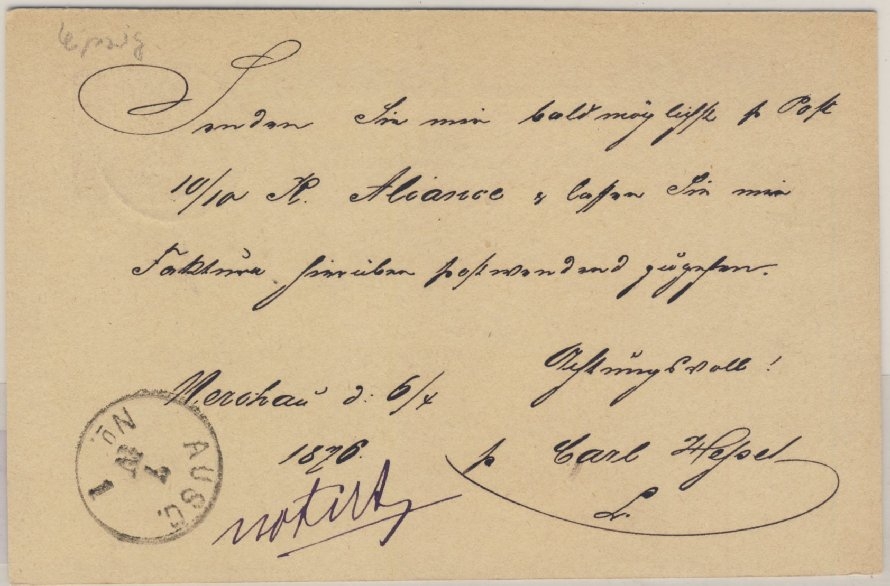 Leipzig
Senden Sie mir baldmöglichst p Post
10/10 K. Aliance & lassen Sie mir
Faktura hierüber postwendend zugehen.
Achtungsvoll!
Nerchau d. 6/4
1876. p Carl Hessel
L.
notirt
AUSG.
No. 1
7
IV